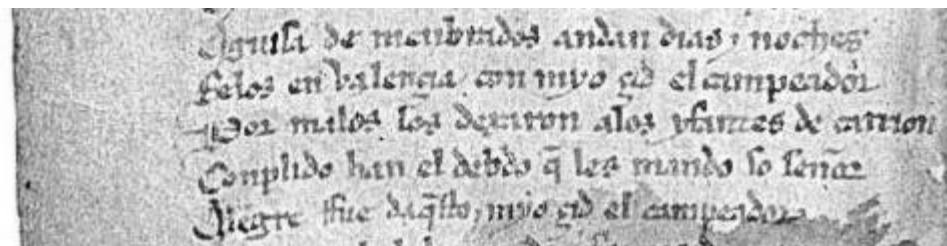 Aguisa de menbrados andan dias ⁊ noches
Felos en valençia con myo çid el campeador
Por malos los dexaron alos yfantes de carrion
Conplido han el debdo q̃ les mando so señor
Alegre ffue daq̃sto myo çid el campeador